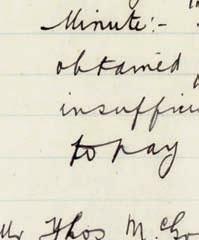 Minute:-
obtained
insufficie
to pay
Mr Thos M. Go